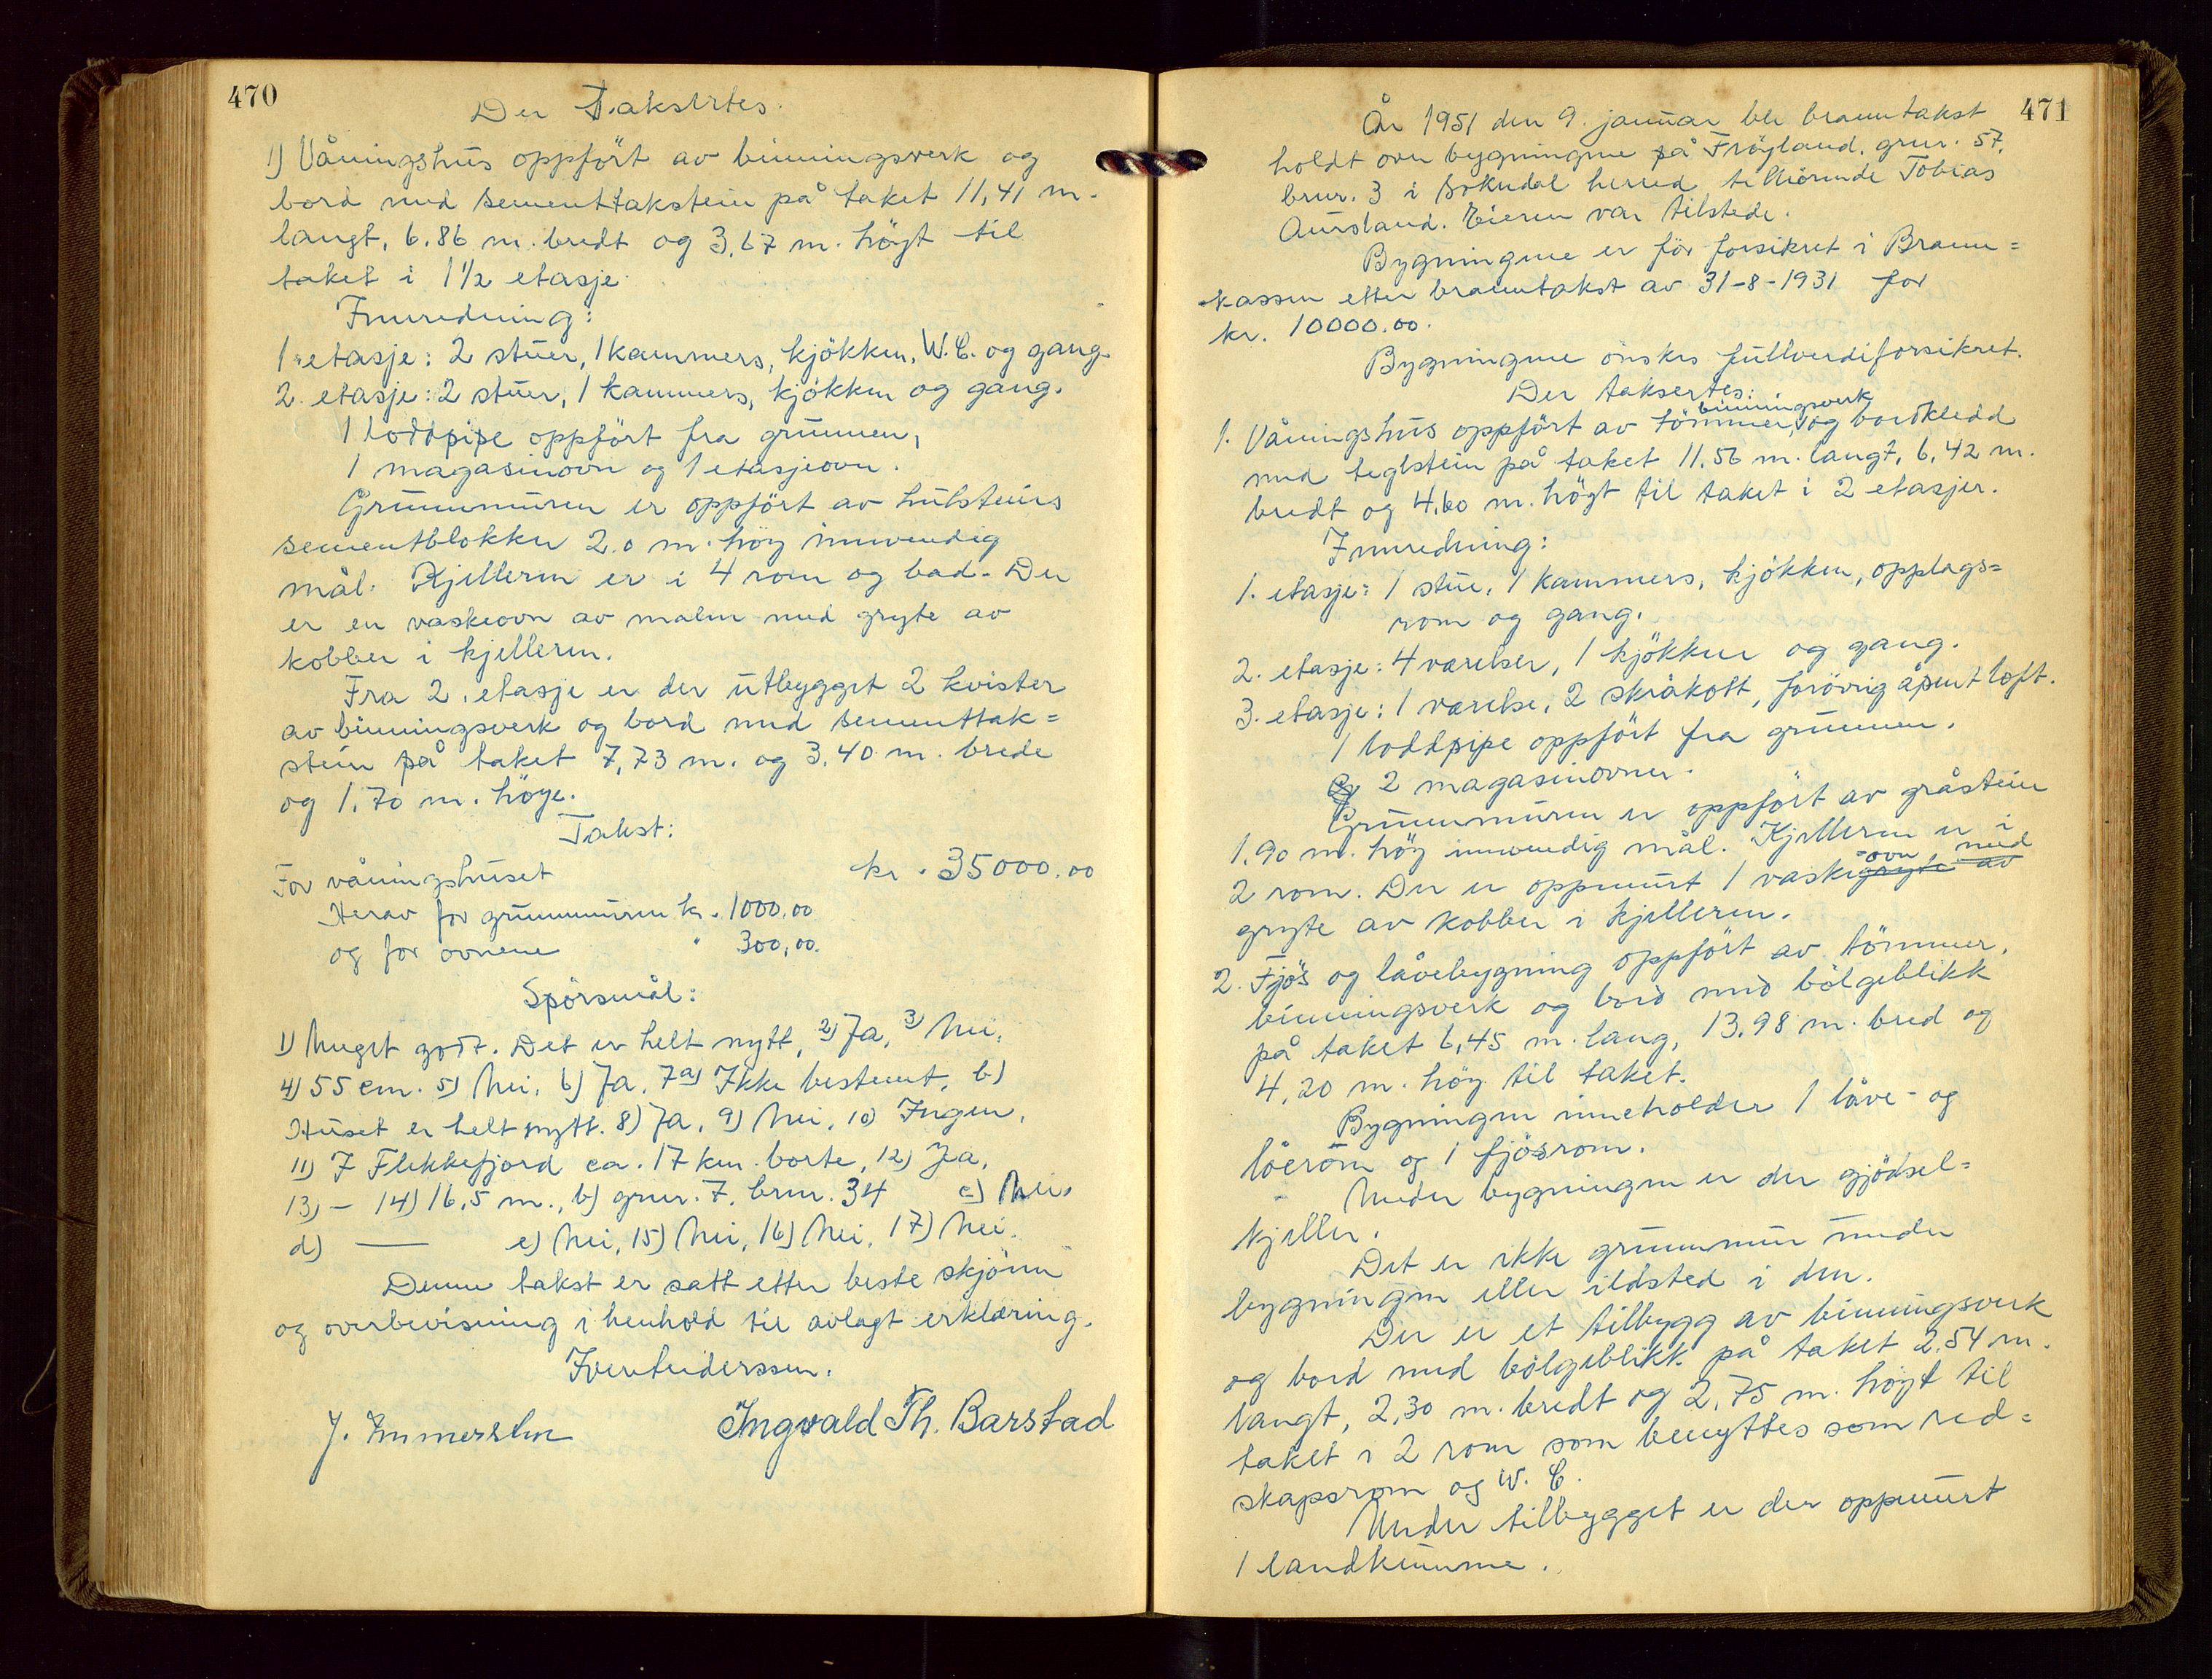 470
Der Taksertes.
1) Våningshus oppført av binningsverk og
bord med sementtakstein på taket 11,41 m.
langt, 6.86 m. bredt og 3,67 m. høgt til
taket i 1½ etasje.
Innredning:
1. etasje: 2 stuer, 1 kammers, kjøkken, W.C. og gang.
2. etasje: 2 stuer, 1 kammers, kjøkken og gang.
1 loddpipe oppført fra grunnen,
1 magasinovn og 1 etasjeovn.
Grunnmuren er oppført av hulsteins
sementblokker 2.0 m. høy innvendig
mål. Kjelleren er i 4 rom og bad. Der
er en vaskeovn av malm med gryte av
kobber i kjelleren.
Fra 2. etasje er der utbygget 2 kvister
av binningsverk og bord med sementtak=
stein på taket 7,73 m. og 3.40 m. brede
og 1.70 m. høye.
Takst:
For våningshuset kr. 35000.00
Herav for grunnmuren kr. 1000.00
og for ovnene " 300,00.
Spørsmål:
1) Meget godt. Det er helt nytt, 2) Ja, 3) Nei,
4) 55 cm. 5) Nei, 6) Ja, 7a) Ikke bestemt, b)
Huset er helt nytt. 8) Ja, 9) Nei, 10) Ingen,
11) I Flekkefjord ca. 17 km. borte, 12) Ja,
13) – 14) 16,5 m., b) gnr. 7, brnr. 34 c) Nei,
d) — e) Nei, 15) Nei, 16) Nei, 17) Nei.
Denne takst er satt etter beste skjønn
og overbevisning i henhold til avlagt erklæring.
J. Immerslun Ingvald Th. Barstad
471
År 1951 den 9. januar ble branntakst
holdt over bygningene på Frøyland, gnr. 57,
brnr. 3 i Sokndal herred tilhørende Tobias
Aursland. Eieren var tilstede.
Bygningene er før forsikret i Brann=
kassen etter branntakst av 31-8-1931 for
kr. 10000.00.
Bygningene ønskes fullverdiforsikret.
Der taksertes:
binningsverk
1. Våningshus oppført av tømmer, og bordkledd
med teglstein på taket 11,56 m. langt, 6,42 m.
bredt og 4,60 m. høgt til taket i 2 etasjer.
Innredning:
1. etasje: 1 stue, 1 kammers, kjøkken, opplags=
rom og gang.
2. etasje: 4 værelser, 1 kjøkken og gang.
3. etasje: 1 værelse, 2 skråkott, forøvrig åpent loft.
1 loddpipe oppført fra grunnen.
Og 2 magasinovner.
Grunnmuren er oppført av gråstein
1.90 m. høy innvendig mål. Kjelleren er i
-ovn, med
2 rom. Der er oppmurt 1 vaskegryte av
gryte av kobber i kjelleren.
2. Fjøs og låvebygning oppført av tømmer,
binningsverk og bord med bølgeblikk
på taket 6,45 m. lang, 13,98 m. bred og
4,20 m. høy til taket.
Bygningen inneholder 1 låve- og
løerom og 1 fjøsrom.
Under bygningen er der gjødsel=
kjeller.
Det er ikke grunnmur under
bygningen eller ildsted i den.
Der er et tilbygg av binningsverk
og bord med bølgeblikk på taket 2.54 m.
langt, 2,30 m. bredt og 2,75 m. høyt til
taket i 2 rom som benyttes som red=
skapsrom og W.C.
Under tilbygget er der oppmurt
1 landkumme.